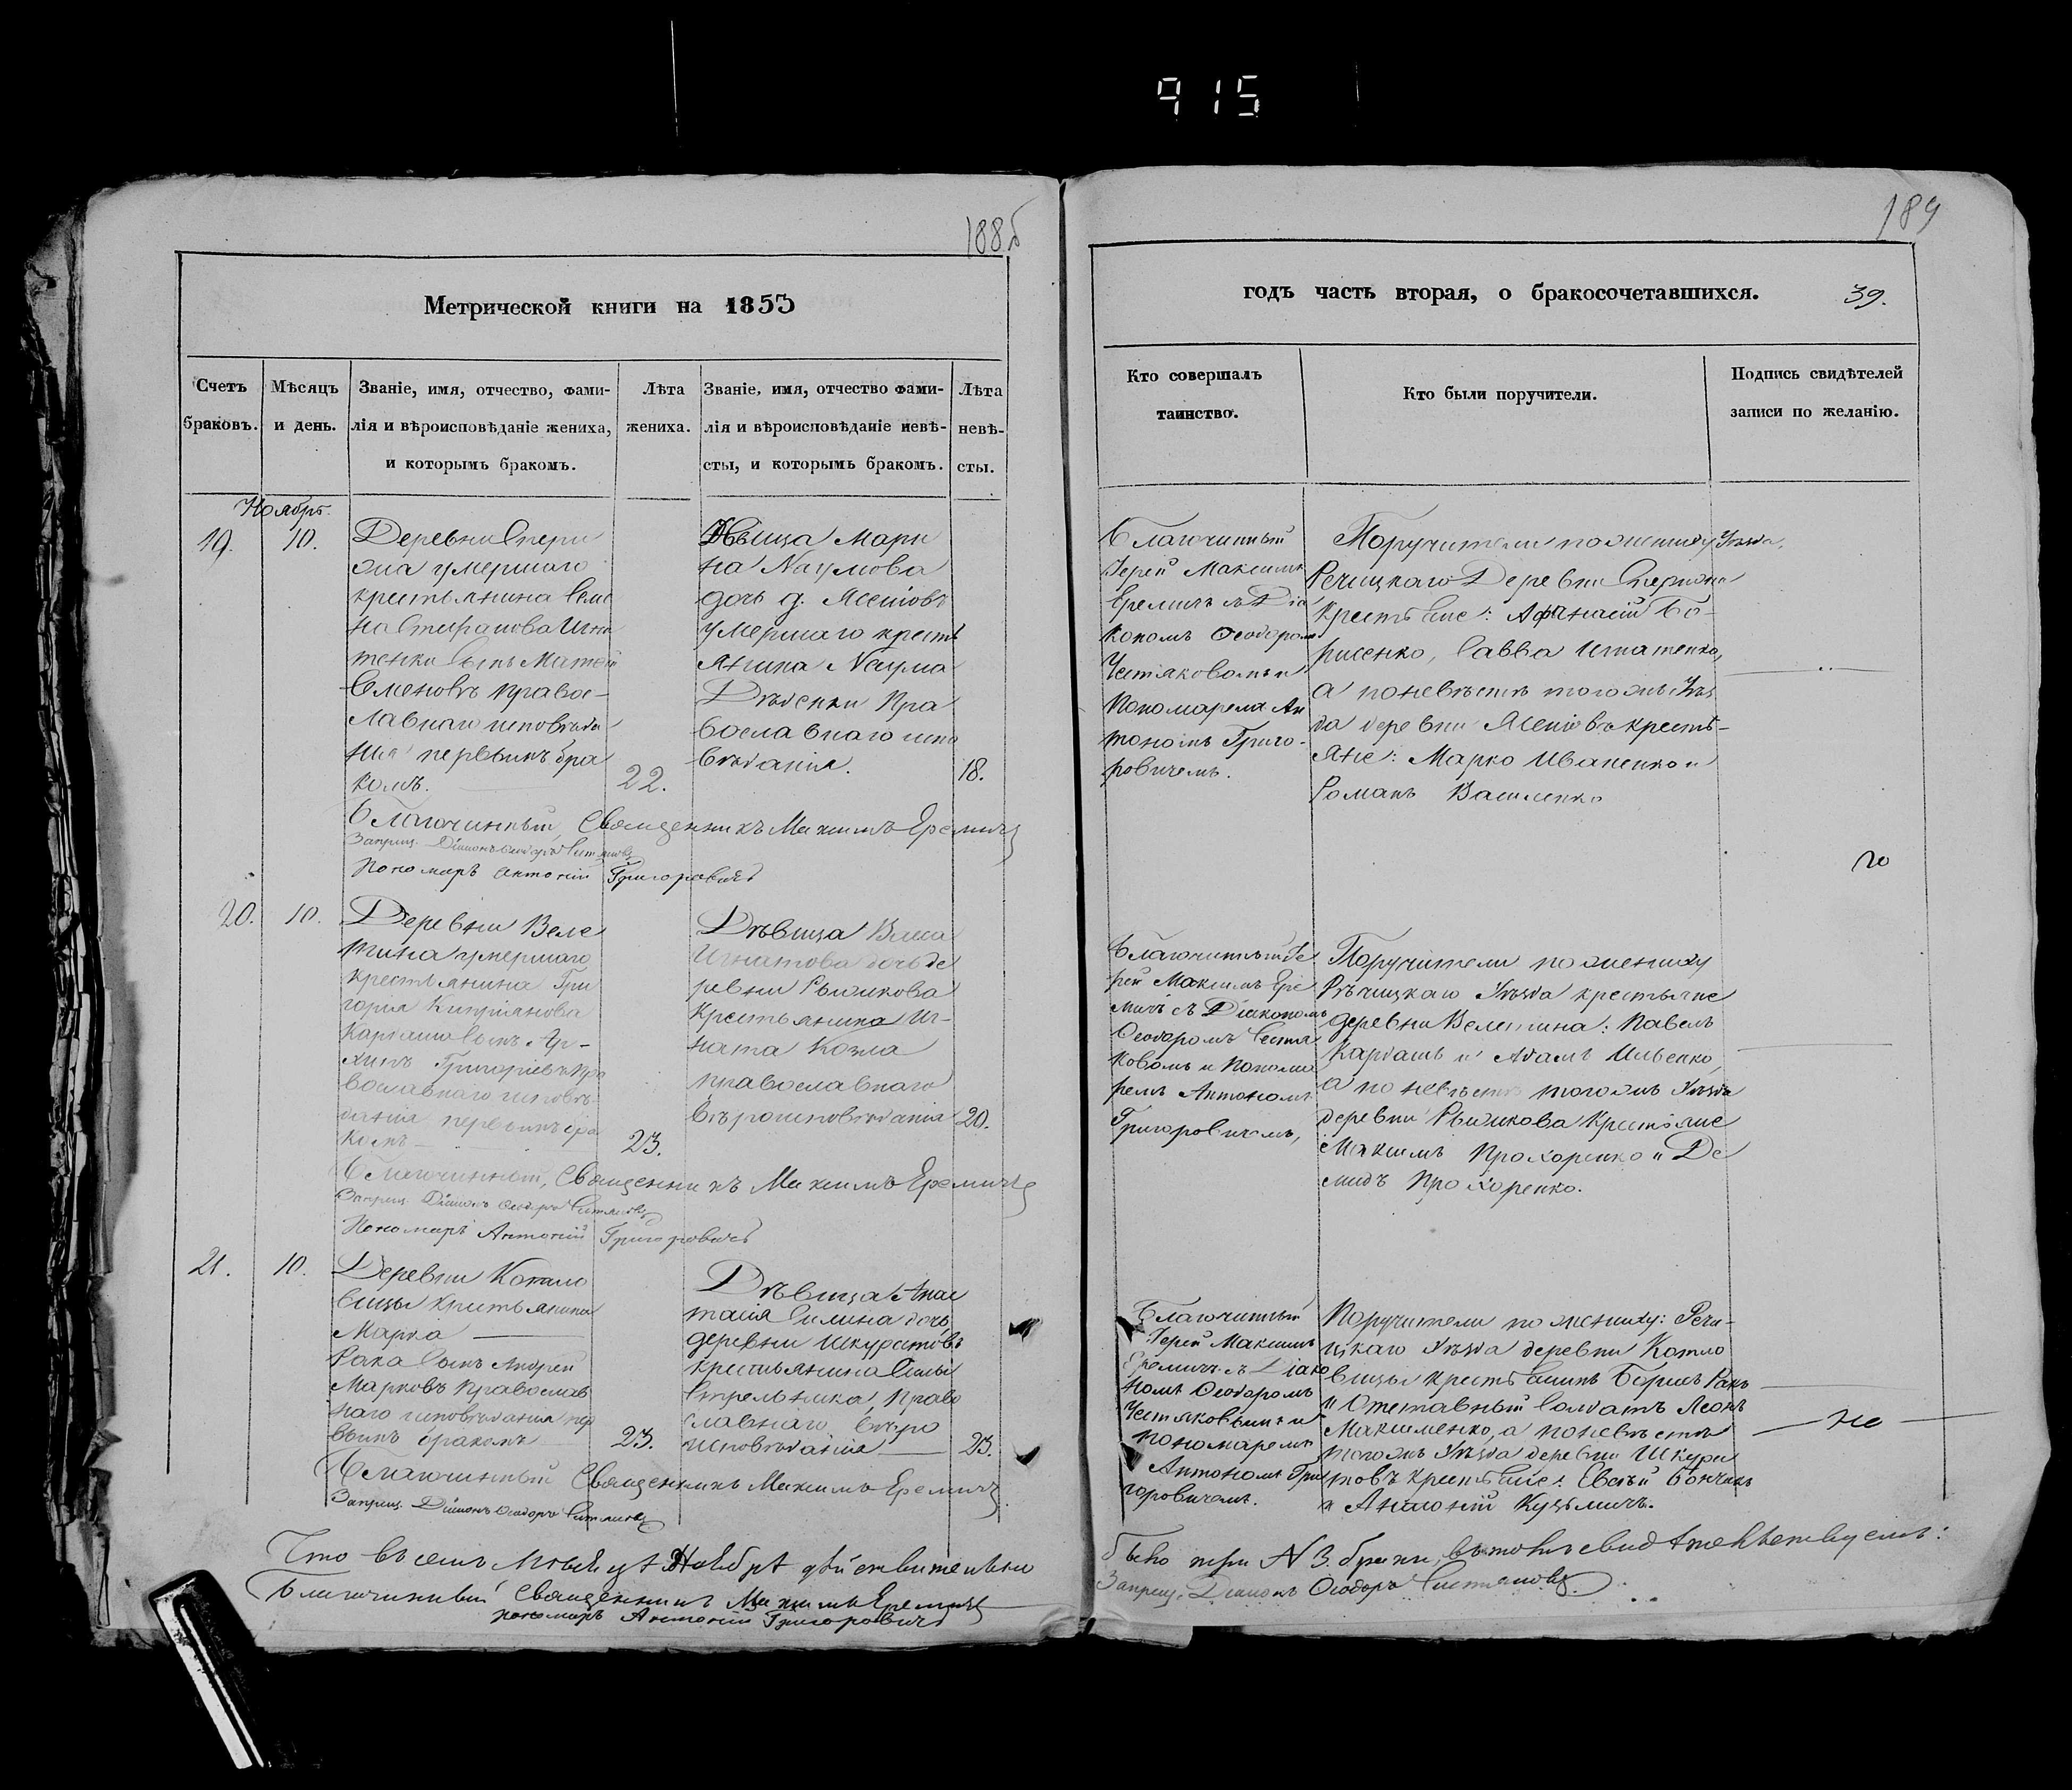 915
188б
Метрической книги на 1853
Счетъ браковъ.
Мѣсяцъ и день.
Званіе, имя, отчество, фами-
лія и вѣроисповѣданіе жениха,
и которымъ бракомъ.
Лѣта жениха.
Званіе, имя, отчество фами-
лія и вѣроисповѣданіе невѣ-
сты, и которымъ бракомъ.
Лѣта невѣ-
сты.
Ноябрь.
19.
10.
Деревни
умершаго
крестьянина Семе
на Стефанова Игна
тенки сынъ Матѳей
Семеновъ правос-
лавнаго исповѣда
нія первымъ бра
комъ.
22.
Дѣвица Мари
на Наумова
дочь д. Ясеновъ
умершаго кресть
янина Наума
Дѣденки Пра
вославнаго испо
вѣданія.
18.
Благочинный, Священникъ Максимъ Еремичъ
Запрещ. Діаконъ Ѳеодоръ
Пономарь Антоній Григоровичъ
20.
10.
Деревни Веле
тина умершаго
крестьянина Гри
горія Кипріянова
Кардаша сынъ Ар-
хипъ Григорьевъ Пра
вославнаго исповѣ-
данія первымъ бра
комъ
23.
Дѣвица Васса
Игнатова дочь де
ревни Рыжкова
Крестьянина Иг-
ната Козла
православнаго
вѣроисповѣданія
20.
Благочинный, Священникъ Максимъ Еремичъ
Запрещ. Діаконъ Ѳеодоръ
Пономарь Антоній Григоровичъ
21.
10.
Деревни Котло
вицы крестьянина
Марка
Рака сынъ Андрей
Марковъ Православ
наго исповѣданія пер
вымъ бракомъ
23.
Дѣвица Анас
тасія Силина дочь
деревни Шкуратовъ
крестьянина Силы
Стрельника, Право
славнаго вѣро
исповѣданія
23.
Благочинный Священникъ Максимъ Еремичъ
Запрещ. Діаконъ Ѳеодоръ
Что въ семъ мѣсяцѣ Ноябрѣ дѣйствительно
Благочинный Священникъ Максимъ Еремичъ
пономарь Антоній Григоровичъ
189
годъ часть вторая, о бракосочетавшихся.
39.
Кто совершалъ
таинство.
Кто были поручители.
Подпись свидѣтелей
записи по желанію.
Благочинный
Іерей Максимъ
Еремичъ съ Діа
кономъ Ѳеодоромъ
Пономаремъ Ан
тономъ Григо-
ровичемъ.
Поручители по жениху Уѣзда
Речицкаго Деревни
Крестьяне: Афанасій Бо-
рисенко, Савва Игнатенко,
а по невѣстѣ тогожъ Уѣз
да деревни Ясеновъ кресть-
яне: Марко Иваненко и
Романъ Василенко
Благочинный Іе
рей Максимъ Ере
мичъ съ Діакономъ
Ѳеодоромъ Чистя
ковомъ и Понома
ремъ Антономъ
Григоровичемъ,
Поручители по жениху
Рѣчицкаго Уѣзда крестьяне
деревни Велетина: Павелъ
Кардашъ и Адамъ Ильенко,
а по невѣстѣ тогожъ Уѣзда
деревни Рыжкова Крестьяне
Максимъ Прохоренко и Де
мидъ Прохоренко.
Благочинный
Іерей Максимъ
Еремичъ съ Діако
номъ Ѳеодоромъ
Чистяковымъ и
пономаремъ
Антономъ Гри
горовичемъ.
Поручители по жениху: Речи-
цкаго Уѣзда деревни Котло
вицы Борисъ Ракъ
и Отставный Солдатъ Леонъ
Максименко, а по невѣстѣ
тогожъ Уѣзда деревни Шкура
товъ крестьяне: Евсѣй
и Кузьмичъ.
было три № 3. брака, въ томъ свидѣтельствуемъ:
Запрещ. Діаконъ Ѳеодоръ